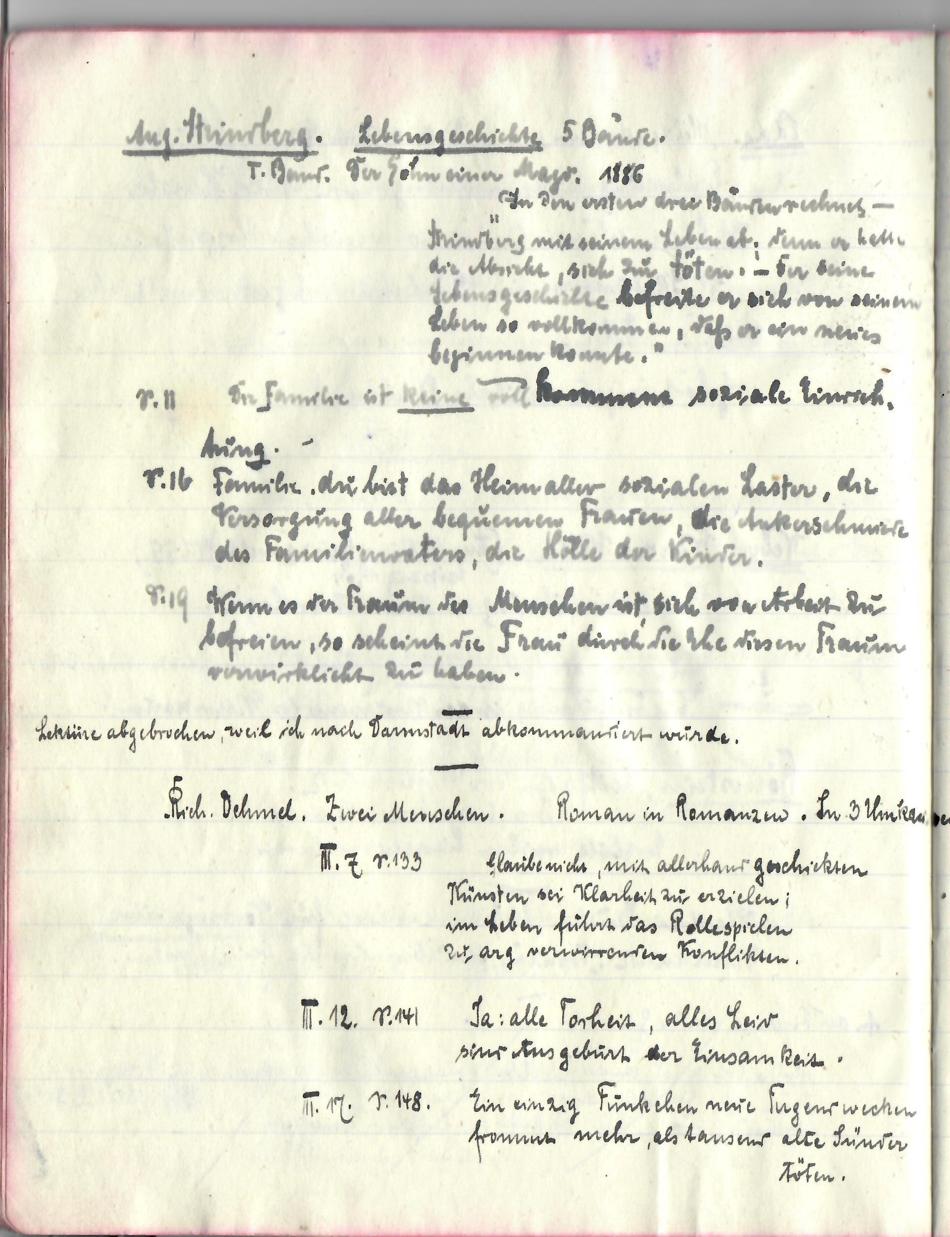 Aug. Strindberg. Lebensgeschichte 5 Bände.
I. Band. Der Sohn einer Magd. 1886
"In den ersten drei Bänden rechnet
Strindberg mit seinem Leben ab; denn er hatte
die Absicht, sich zu töten. – Der seine
Lebensgeschichte befreite er sich von seinem
Leben so vollkommen, daß er ein neues
beginnen konnte."
S. 11 Die Familie ist keine vollkommene soziale Einrich-
tung. –
S. 16 Familie, du bist das Heim aller sozialen Laster, die
Versorgung aller bequemen Frauen, die Ankerschmiede
des Familienvaters, die Hölle der Kinder.
S. 19 Wenn es der Traum des Menschen ist, sich von Arbeit zu
befreien, so scheint die Frau durch die Ehe diesen Traum
verwirklicht zu haben.
Lektüre abgebrochen, weil ich nach Darmstadt abkommandiert wurde.
Rich. Dehmel. Zwei Menschen. Roman in Romanzen. In 3 Umkreisen
III. 7 S. 133 Glaube nicht, mit allerhand geschickten
Künsten sei Klarheit zu erzielen;
im Leben führt das Rollespielen
zu arg verwirrenden Konflikten.
III. 12. S. 141 Ja: alle Torheit, alles Leid
sind Ausgeburt der Einsamkeit.
III. 17. S. 148. Ein einzig Fünkchen neue Tugend wecken
frommt mehr, als tausend alte Sünder
töten.